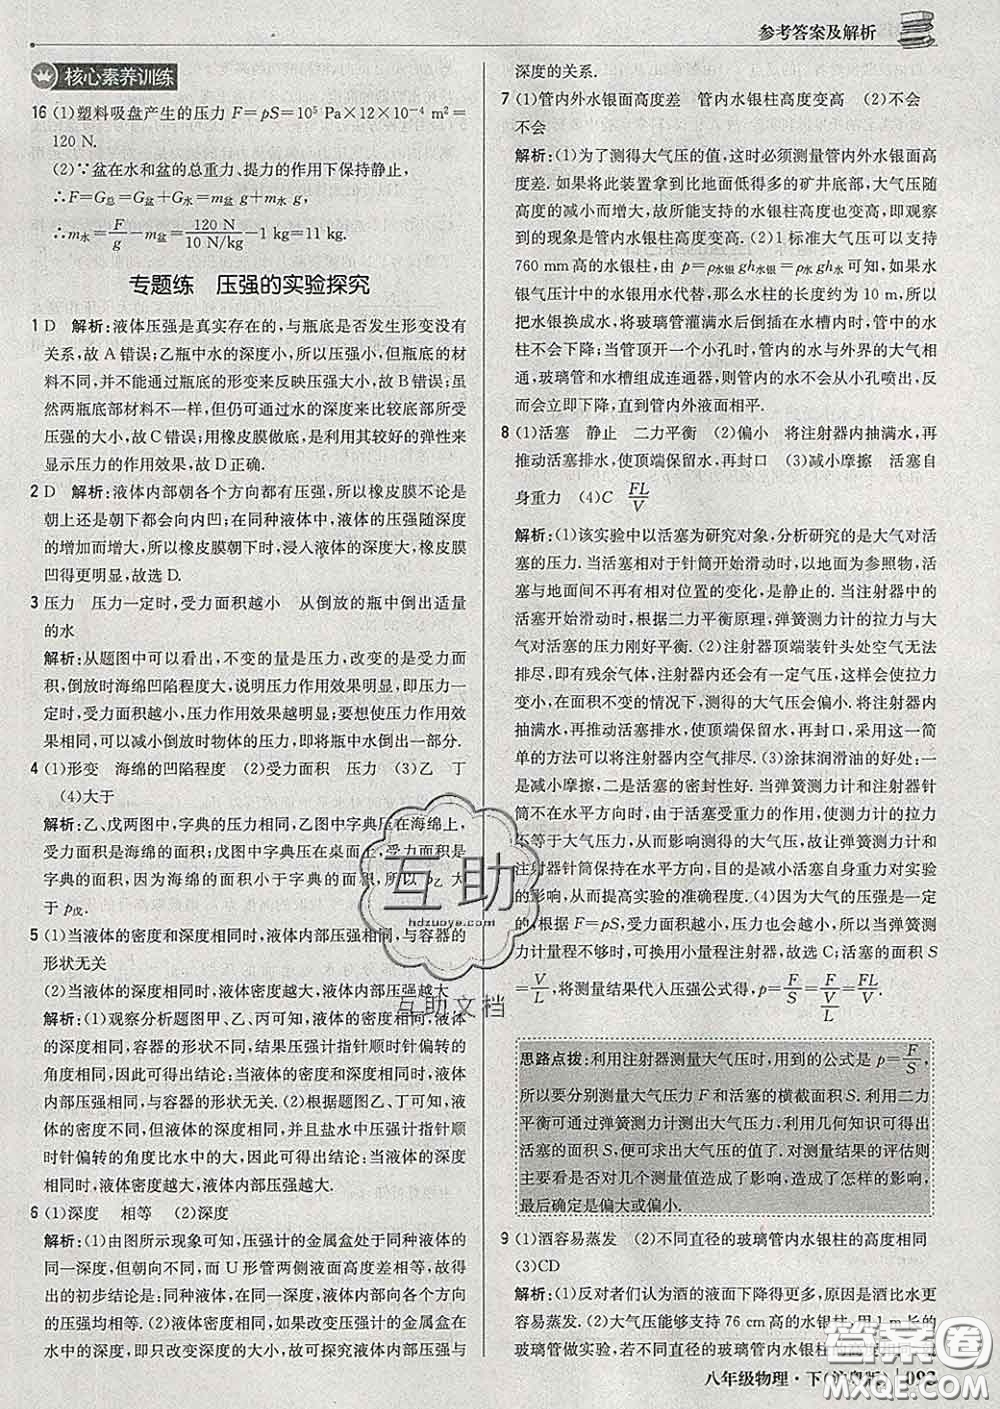 参考答案及解析
核心素养训练
16 (1)塑料吸盘产生的压力 F=pS=10⁵ Pa×12×10⁻⁴ m²=
120 N.
(2)∵盆在水和盆的总重力、提力的作用下保持静止,
∴F=G总=G盆+G水=m盆 g+m水 g,
∴m水=F/g-m盆=120 N/10 N/kg-1 kg=11 kg.
专题练 压强的实验探究
1 D 解析:液体压强是真实存在的,与瓶底是否发生形变没有
关系,故 A 错误;乙瓶中水的深度小,所以压强小,但瓶底的材
料不同,并不能通过瓶底的形变来反映压强大小,故 B 错误;虽
然两瓶底部材料不一样,但仍可通过水的深度来比较底部所受
压强的大小,故 C 错误;用橡皮膜做底,利用其较好的弹性来
显示压力的作用效果,故 D 正确.
2 D 解析:液体内部朝各个方向都有压强,所以橡皮膜不论是
朝上还是朝下都会向内凹;在同种液体中,液体的压强随深度
的增加而增大,所以橡皮膜朝下时,浸入液体的深度大,橡皮膜
凹得更明显,故选 D.
3 压力 压力一定时,受力面积越小 从倒放的瓶中倒出适量
的水
解析:从题图中可以看出,不变的量是压力,改变的是受力面
积,倒放时海绵凹陷程度大,说明压力作用效果明显,即压力一
定时,受力面积越小,压力作用效果越明显;要想使压力作用效
果相同,可以减小倒放时物体的压力,即将瓶中水倒出一部分.
4 (1)形变 海绵的凹陷程度 (2)受力面积 压力 (3)乙 丁
(4)大于
解析:乙、戊两图中,字典的压力相同,乙图中字典压在海绵上,
受力面积是海绵的面积;戊图中字典压在桌面上,受力面积是
字典的面积,因为海绵的面积小于字典的面积,所以 p乙 大
于 p戊.
5 (1)当液体的密度和深度相同时,液体内部压强相同,与容器的
形状无关
(2)当液体的深度相同时,液体密度越大,液体内部压强越大
解析:(1)观察分析题图甲、乙、丙可知,液体的密度相同,液体
的深度相同,容器的形状不同,结果压强计指针顺时针偏转的
角度相同,因此可得出结论:当液体的密度和深度相同时,液体
内部压强相同,与容器的形状无关.(2)根据题图乙、丁可知,液
体的深度相同,液体的密度不同,并且盐水中压强计的指针顺
时针偏转的角度比水中的大,因此可得出结论:当液体的深度
相同时,液体密度越大,液体内部压强越大.
6 (1)深度 相等 (2)深度
解析:(1)由图所示现象可知,压强计的金属盒处于同种液体的
同一深度,但朝向不同,而 U 形管两侧液面高度差相等,故得
出的初步结论是:同种液体在同一深度处,液体内部向各个方向
的压强均相等.(2)液体密度相同,如果改变压强计的金属盒在
水中的深度,即只改变深度的大小,故可探究液体内部压强与
深度的关系.
7 (1)管内外水银面高度差 管内水银柱高度变高 (2)不会
不会
解析:(1)为了测得大气压的值,这时必须测量管内外水银面高
度差. 如果将此装置拿到比地面低得多的矿井底部,大气压随
高度的减小而增大,故所能支持的水银柱高度也变高,即观察
到的现象是管内水银柱高度变高.(2)1 标准大气压可以支持
760 mm 高的水银柱,由 p=ρ水银 gh水银=ρ水 gh水 可知,如果水
银气压计中的水银用水代替,那么水柱的长度约为 10 m,所以
把水银换成水,将玻璃管灌满水后倒插在水槽内时,管中的水
柱不会下降;当管顶开一个小孔时,管内的水与外界的大气相
通,玻璃管和水槽组成连通器,则管内的水不会从小孔喷出,反
而会立即下降,直到管内外液面相平.
8 (1)活塞 静止 二力平衡 (2)偏小 将注射器内抽满水,再
推动活塞排水,使顶端保留水,再封口 (3)减小摩擦 活塞自
身重力 (4)C FL/V
解析:(1)该实验中以活塞为研究对象,分析研究的是大气对活
塞的压力. 当活塞相对于针筒开始滑动时,以地面为参照物,活
塞与地面间不再有相对位置的变化,是静止的. 当注射器中的
活塞开始滑动时,根据二力平衡原理,弹簧测力计的拉力与大
气对活塞的压力刚好平衡.(2)注射器顶端装针头处空气无法
排尽,即有残余气体,注射器内还会有一定气压,这样会使拉力
变小,在面积不变的情况下,测得的大气压会偏小. 将注射器内
抽满水,再推动活塞排水,使顶端保留水,再封口,采用这一简
单的方法可以将注射器内空气排尽.(3)涂抹润滑油的好处:一
是减小摩擦,二是活塞的密封性会更好. 当弹簧测力计和注射
筒不在水平方向时,由于活塞受重力的作用,使测力计的拉力
不等于大气压力,从而影响测得的大气压,故让弹簧测力计和
注射器针筒保持在水平方向,目的是减小活塞重力对实验
的影响,所以提高实验的准确程度.(4)因为大气的压强是一定
的,根据 F=pS,受力面积变小,压力也会变小,所以当弹簧测
力计量程不够时,可换用小量程注射器,故选 C;活塞的面积 S
=V/L,将测量结果代入压强公式得,p=F/S=F/(V/L)=FL/V.
思路点拨:利用注射器测量大气压时,用到的公式是 p=F/S,
所以要分别测量大气压力 F 和活塞的横截面积 S. 利用二力
平衡可通过弹簧测力计测出大气压力,利用几何知识可得出
活塞的面积 S,便可求出大气压的值了. 对测量结果的评估则
主要看是否对几个测量值造成了影响,造成了怎样的影响,
最后确定是偏大或偏小.
9 (1)酒容易蒸发 (2)不同直径的玻璃管内水银柱的高度相同
(3)CD
解析:(1)反对者们认为酒的液面下降得更多,原因是酒比水更
容易蒸发.(2)大气压能够支持 76 cm 高的水银柱,用 1 m 长的
玻璃管做实验,若不同直径的玻璃管内水银柱的高度
八年级物理·下(沪粤版) 093
互助
hdzuoye.com
互助文档
答案圈
MXQE.COM